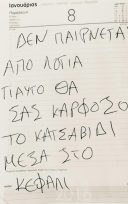 Ιανουάριος
8
ΔΕΝ ΠΑΙΡΝΕΤΑΙ
ΑΠΟ ΛΟΓΙΑ
ΓΙΑΥΤΟ ΘΑ
ΣΑΣ ΚΑΡΦΩΣΩ
ΤΟ ΚΑΤΣΑΒΙΔΙ
ΜΕΣΑ ΣΤΟ
ΚΕΦΑΛΙ